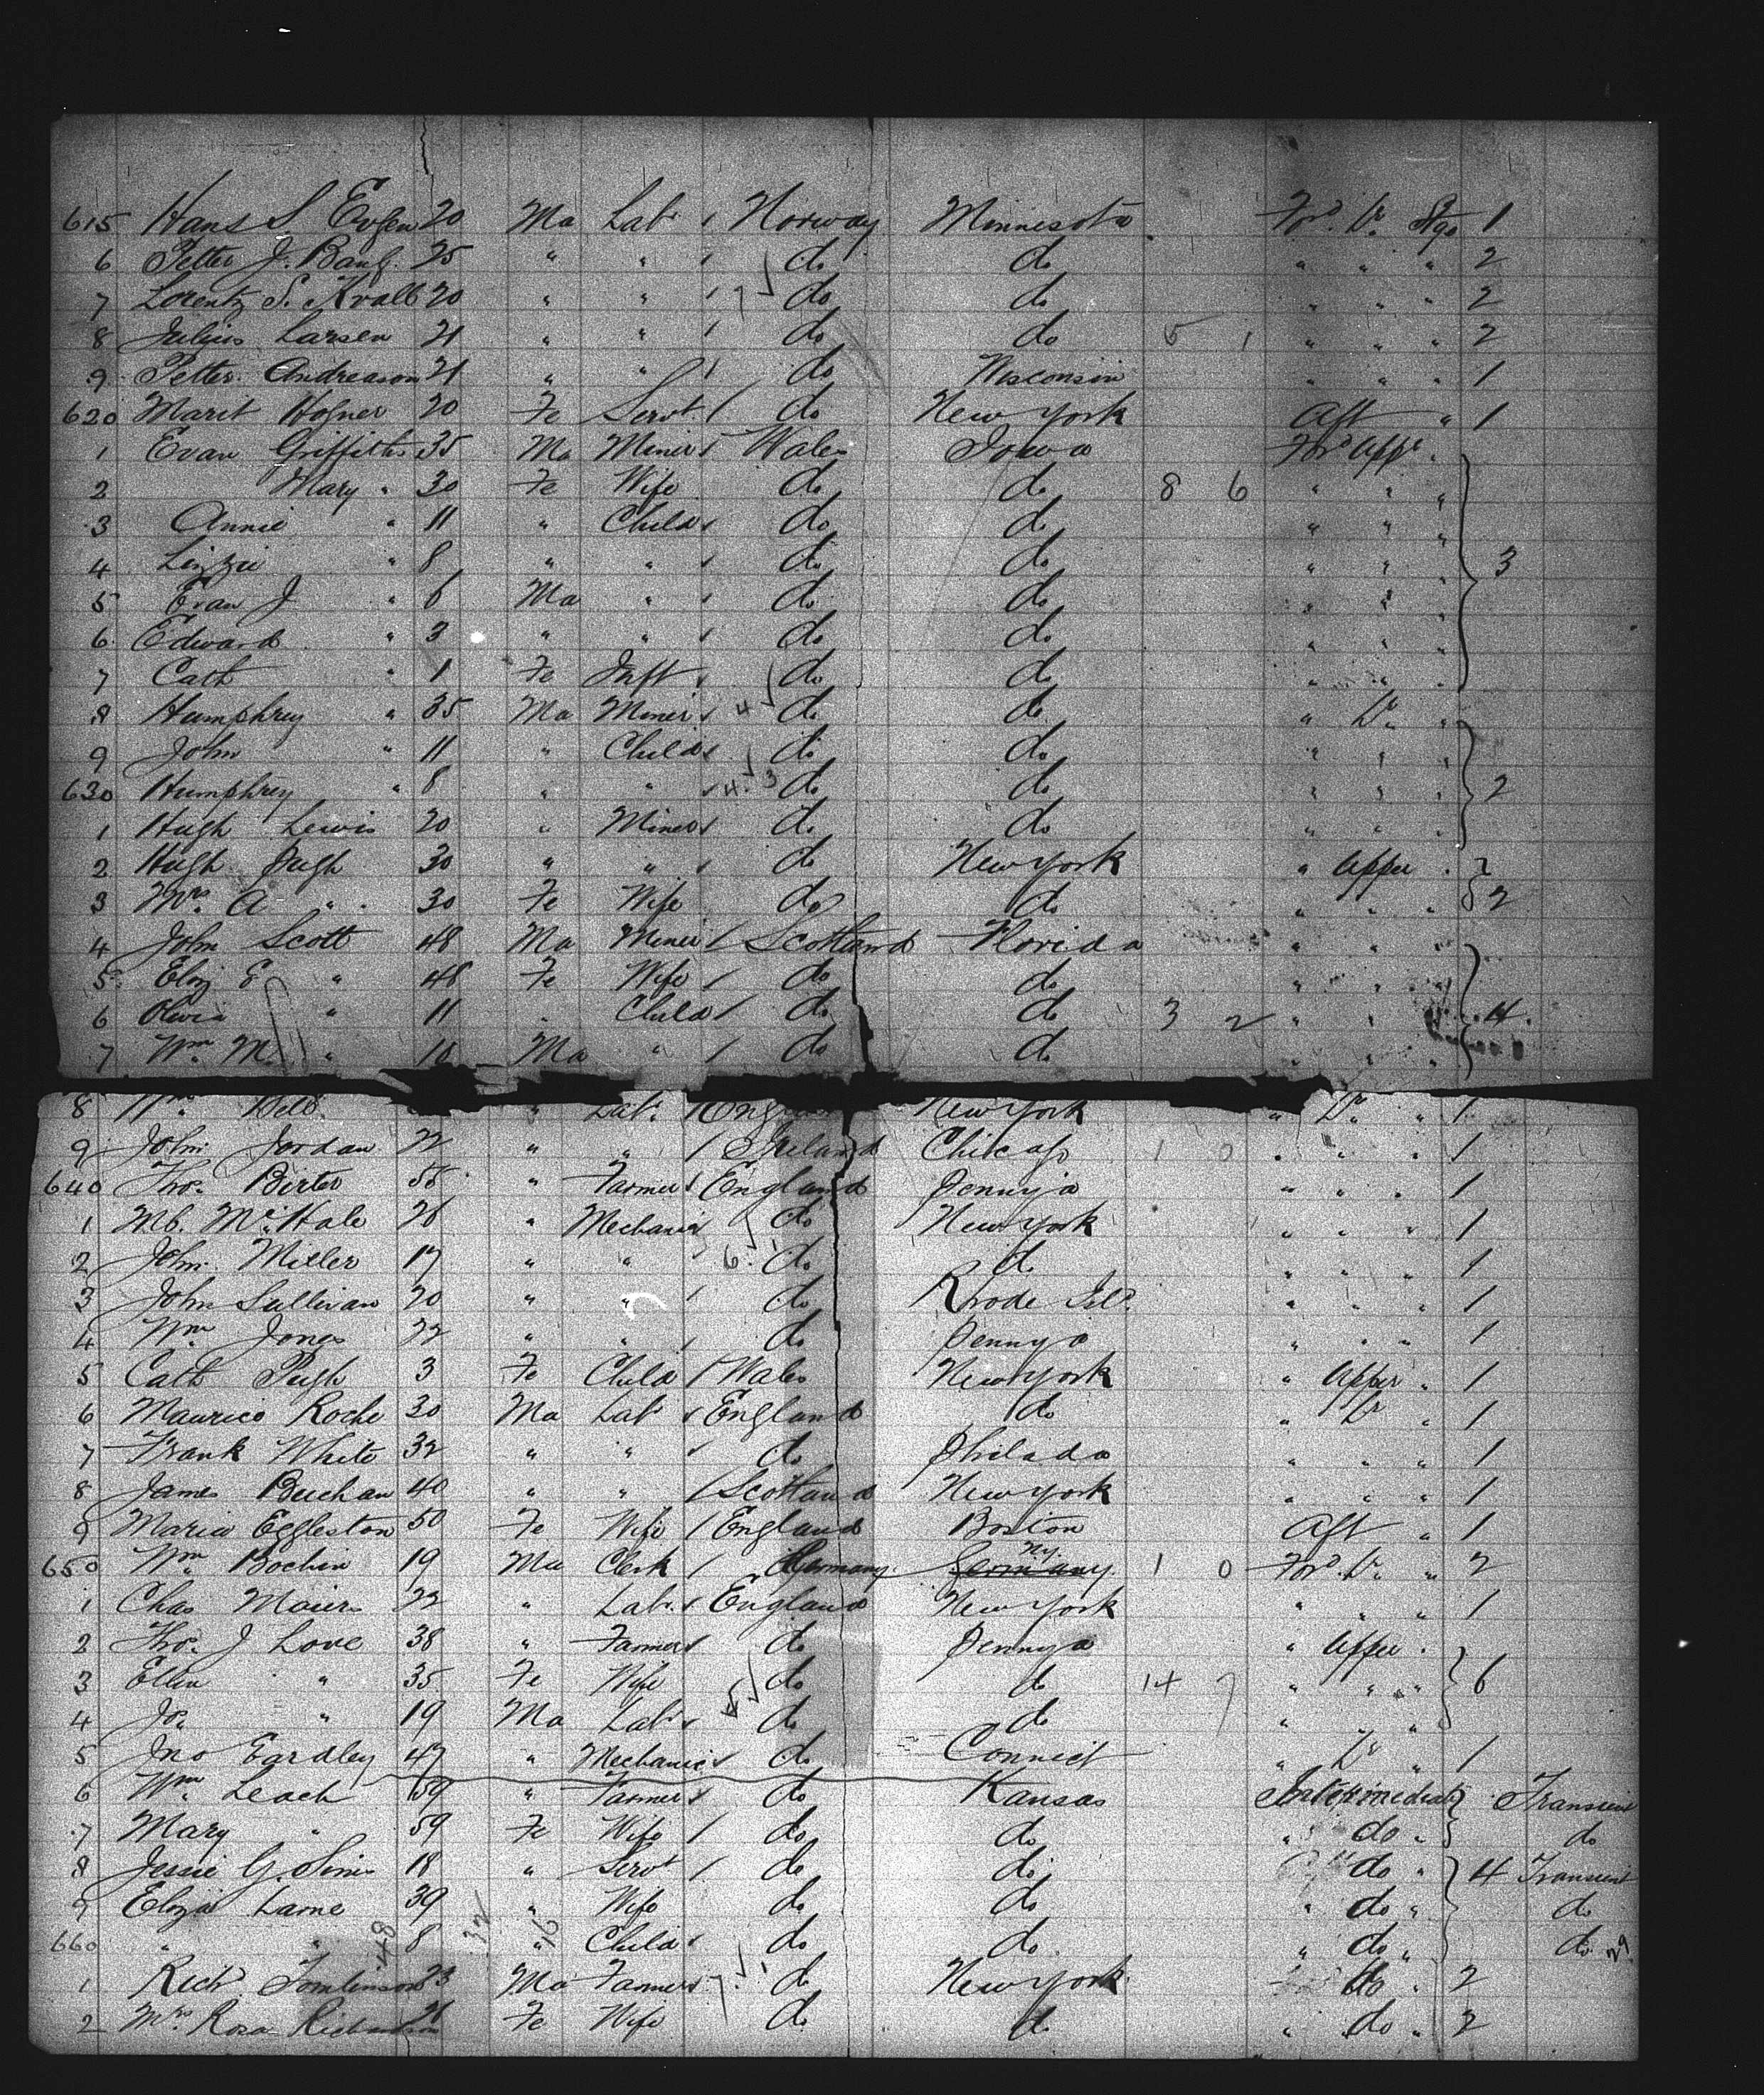 615 Hans S 20 Ma Labr Norway Minnesota Ford Lr Stge 1
6 Petter J. Bang 25 " " do do " " " 2
7 Lorentz S. 20 " " do do " " " 2
8 Julius Larsen 21 " " do do 5 1 " " " 2
9 Petter Andreason 21 " " do Wisconsin " " " 1
620 Marit 20 Fe Servt do New York Aft " 1
1 Evan Griffiths 35 Ma Miner Wales Iowa Ford Uppr "
2 Mary " 30 Fe Wife do do 8 6 " " "
3 Annie " 11 " Child do do " " "
4 Lizzie " 8 " " do do " " " 3
5 Evan J " 6 Ma " do do " " "
6 Edward " 3 " " do do " " "
7 Cath " 1 Fe Inft do do " " "
8 Humphrey " 35 Ma Miner 4 do do " Lr "
9 John " 11 " Child do do " " "
630 Humphrey " 8 " " 4.3 do do " " " 2
1 Hugh Lewis 20 " Miner do do " " "
2 Hugh Pugh 30 " " do New York " Upper "
3 Mrs A " 30 Fe Wife do do " " " 2
4 John Scott 48 Ma Miner Scotland Florida " " "
5 Eliz E " 48 Fe Wife do do " " "
6 Olivia " 11 " Child do do 3 2 " " " 4
7 Wm M " 10 Ma " do do " " "
8 Wm Bell " Labr New York " Lr " 1
9 John Jordan 22 " " Ireland Chicago 1 0 " " " 1
640 Thos 55 " Farmer England Pennya " " " 1
1 Mb. McHale 26 " Mechanic do New York " " " 1
2 John Miller 17 " " 6 do do " " " 1
3 John Sullivan 20 " " do Rhode Isld " " " 1
4 Wm Jones 22 " " do Pennya " " " 1
5 Cath Pugh 3 Fe Child Wales New York " Upper " 1
6 Maurice Roche 30 Ma Labr England do " Lr " 1
7 Frank White 32 " " do Philada " " " 1
8 James Buchan 40 " " Scotland New York " " " 1
9 Maria Eggleston 50 Fe Wife England Boston Aft " 1
650 Wm Bochin 19 Ma Clerk Germany Germany NY 1 0 Ford Lr " 2
1 Chas 22 " Labr England New York " " " 1
2 Thos J Love 38 " Farmer do Pennya " Upper "
3 Ellen " 35 Fe Wife do do 14 7 " " " 6
4 Jos " 19 Ma Labr do do " "
5 Jno Eardley 47 " Mechanic do Connict " Lr " 1
6 Wm Leach 59 " Farmer do Kansas Intermediate Transient
7 Mary " 59 Fe Wife do do " do " do
8 Jessie G. Sims 18 " Servt do do " do " 4 Transient
9 Eliza Lame 39 " Wife do do " do " do
660 " " 8 " Child do do " do " do
1 Rich Tomlinson 23 Ma Farmer do New York do " 2
2 Mrs Rosa Richardson Fe Wife do do " do " 2